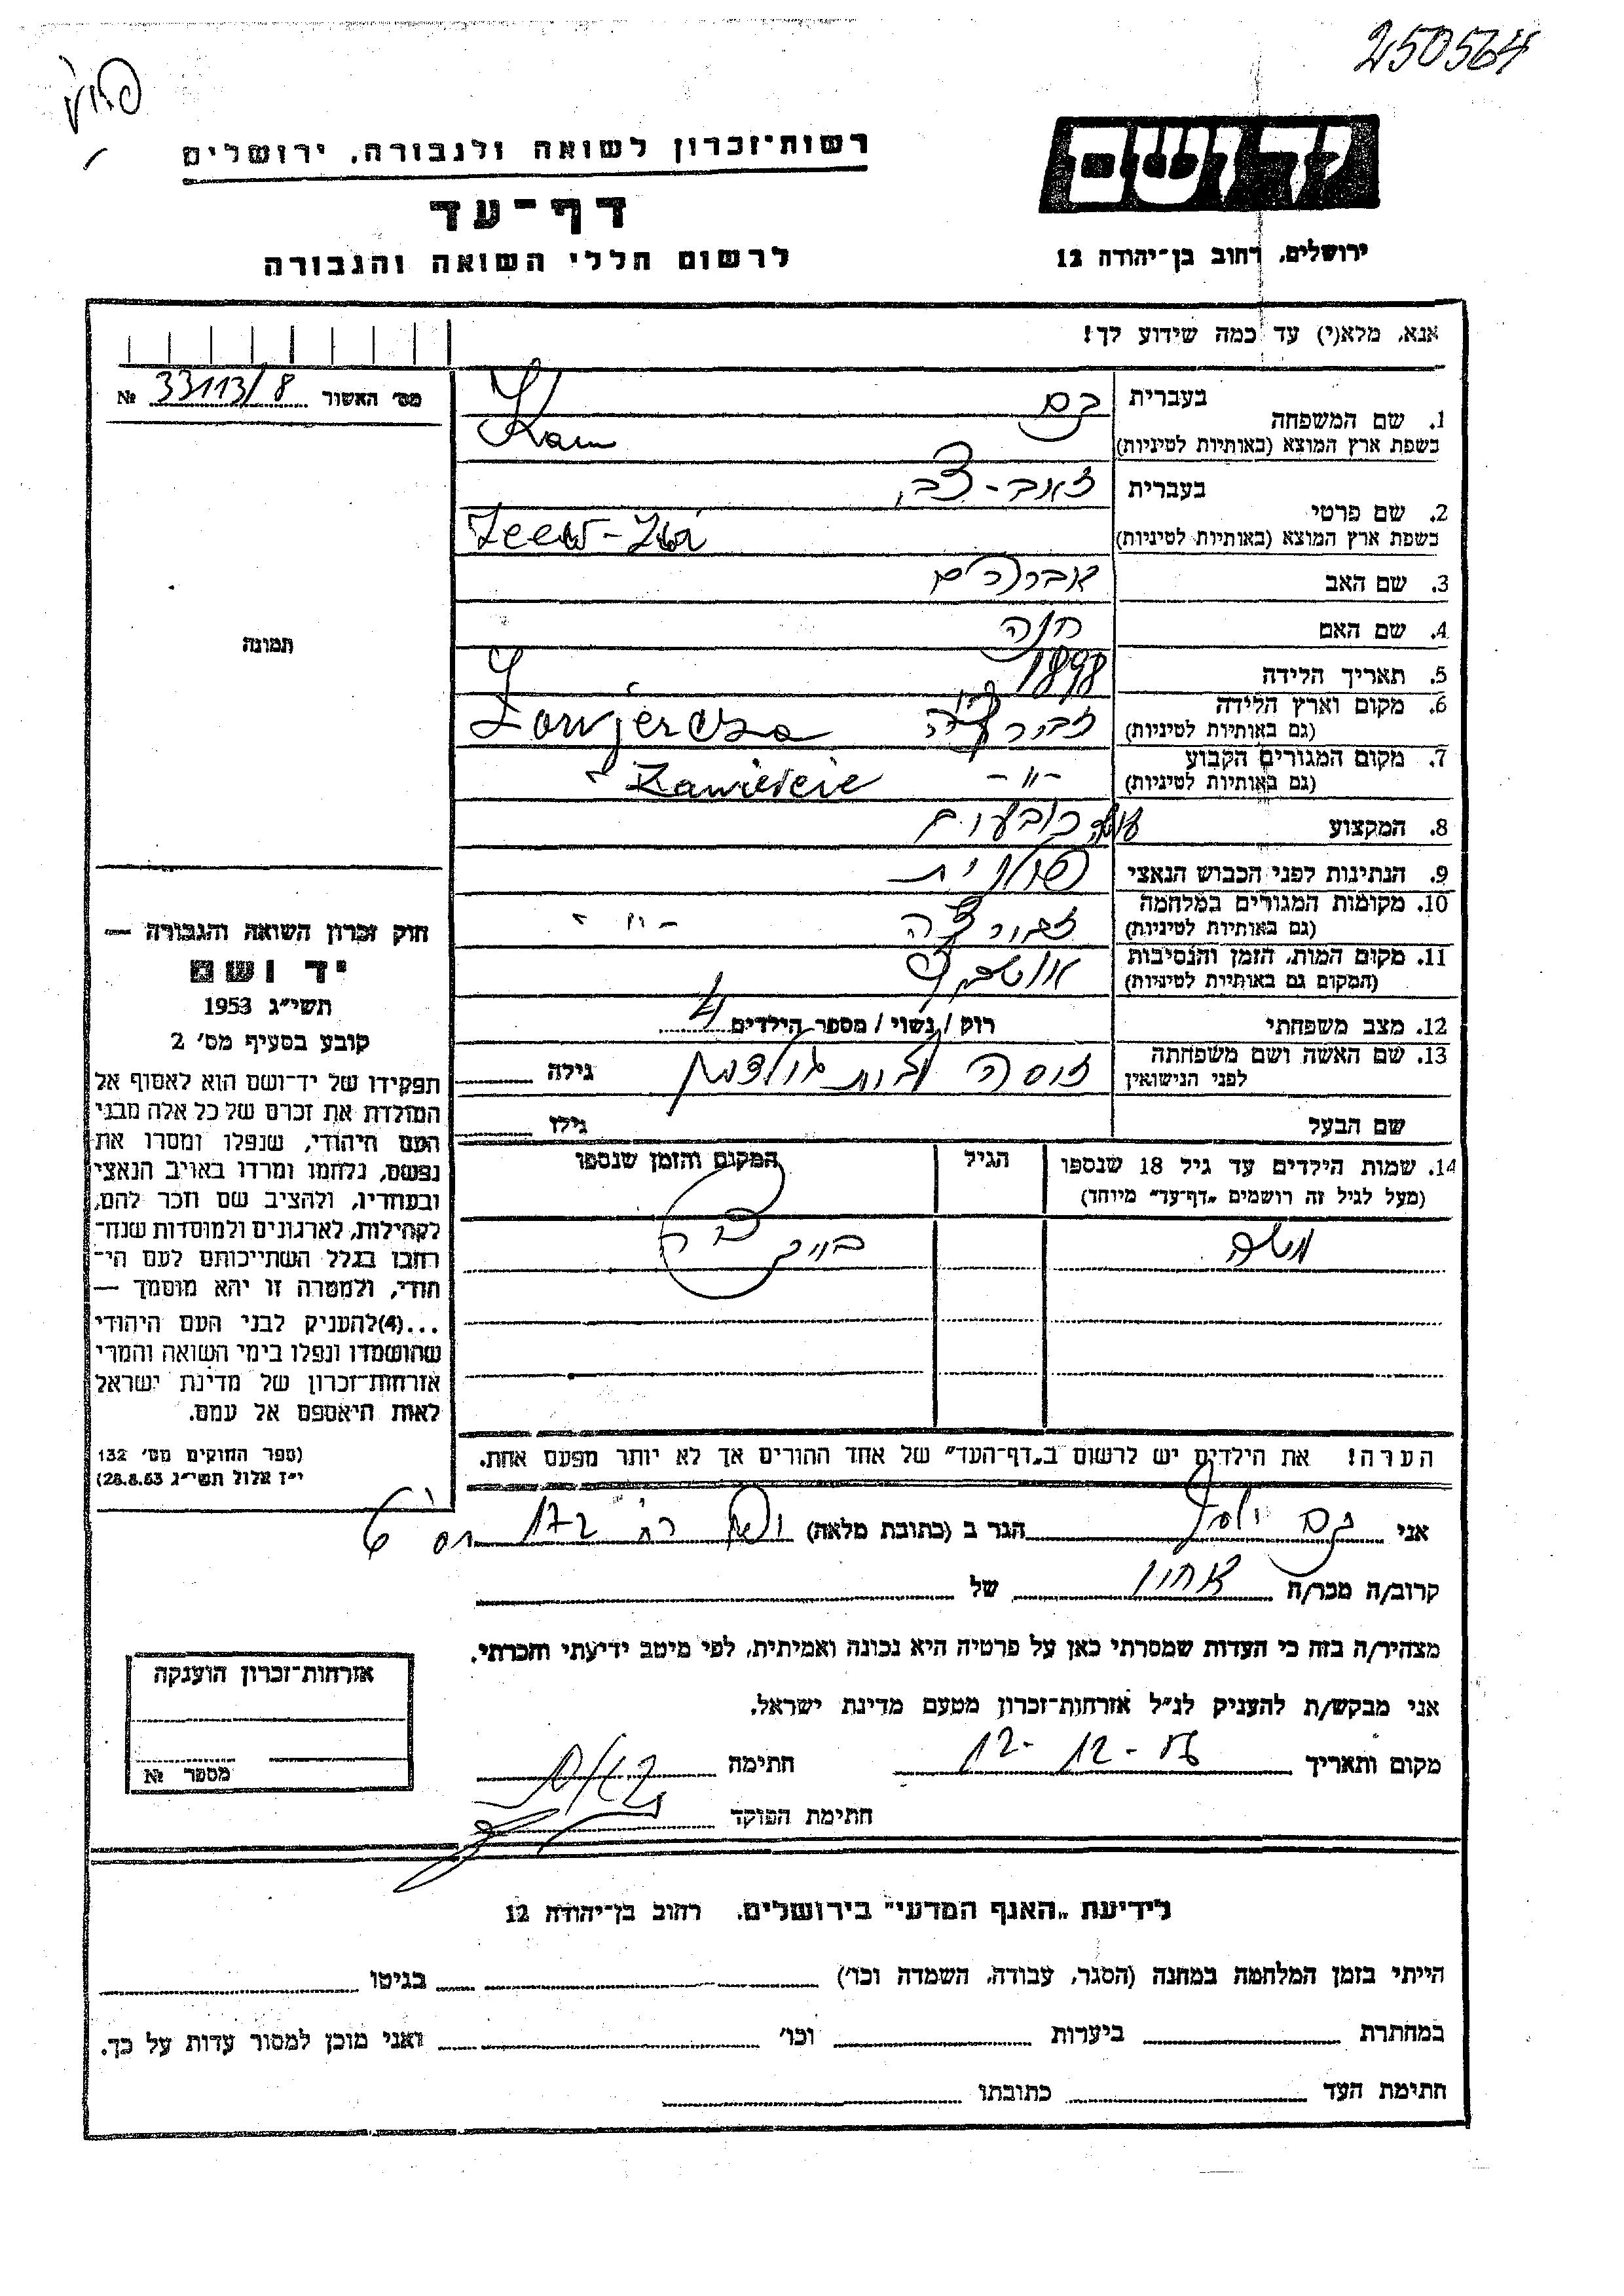 250564
רשות־זכרון לשואה ולגבורה, ירושלים
יד ושם
דף־עד
לרשום חללי השואה והגבורה
ירושלים, רחוב בן־יהודה 12
אנא, מלא(י) עד כמה שידוע לך!
מס׳ האשור 33113/8 №
תמונה
1. שם המשפחה
בעברית קם
בשפת ארץ המוצא (באותיות לטיניות) Kam
2. שם פרטי
בעברית זאב-צבי
בשפת ארץ המוצא (באותיות לטיניות) Zeew-Zwi
3. שם האב אברהם
4. שם האם חנה
5. תאריך הלידה 1898
6. מקום וארץ הלידה
(גם באותיות לטיניות)
7. מקום המגורים הקבוע -״-
(גם באותיות לטיניות)
8. המקצוע כובעים
9. הנתינות לפני הכבוש הנאצי פולנית
10. מקומות המגורים במלחמה -״-
(גם באותיות לטיניות)
11. מקום המות, הזמן והנסיבות
(המקום גם באותיות לטיניות)
12. מצב משפחתי רוק / נשוי / מספר הילדים 4
13. שם האשה ושם משפחתה
לפני הנישואין גילה
שם הבעל גילו
14. שמות הילדים עד גיל 18 שנספו
(מעל לגיל זה רושמים „דף־עד״ מיוחד)
הגיל
המקום והזמן שנספו
הערה! את הילדים יש לרשום ב„דף־העד״ של אחד ההורים אך לא יותר מפעם אחת.
חוק זכרון השואה והגבורה —
יד ושם
תשי״ג 1953
קובע בסעיף מס׳ 2
תפקידו של יד־ושם הוא לאסוף אל
המולדת את זכרם של כל אלה מבני
העם היהודי, שנפלו ומסרו את
נפשם, נלחמו ומרדו באויב הנאצי
ובעוזריו, ולהציב שם וזכר להם,
לקהילות, לארגונים ולמוסדות שנח־
רבו בגלל השתייכותם לעם הי־
הודי, ולמטרה זו יהא מוסמך —
...(4)להעניק לבני העם היהודי
שהושמדו ונפלו בימי השואה והמרי
אזרחות־זכרון של מדינת ישראל
לאות היאספם אל עמם.
(ספר החוקים מס׳ 132
י״ז אלול תשי״ג 28.8.53)
אני קם יוסף הגר ב (כתובת מלאה) 172
קרוב/ה מכר/ה אחיו של
מצהיר/ה בזה כי העדות שמסרתי כאן על פרטיה היא נכונה ואמיתית, לפי מיטב ידיעתי והכרתי.
אני מבקש/ת להעניק לנ״ל אזרחות־זכרון מטעם מדינת ישראל.
מקום ותאריך 12-12-56 חתימה
חתימת הפוקד
אזרחות־זכרון הוענקה
מספר №
לידיעת „האגף המדעי״ בירושלים, רחוב בן־יהודה 12
הייתי בזמן המלחמה במחנה (הסגר, עבודה, השמדה וכו׳) בגיטו
במחתרת ביערות וכו׳ ואני מוכן למסור עדות על כך.
חתימת העד כתובתו